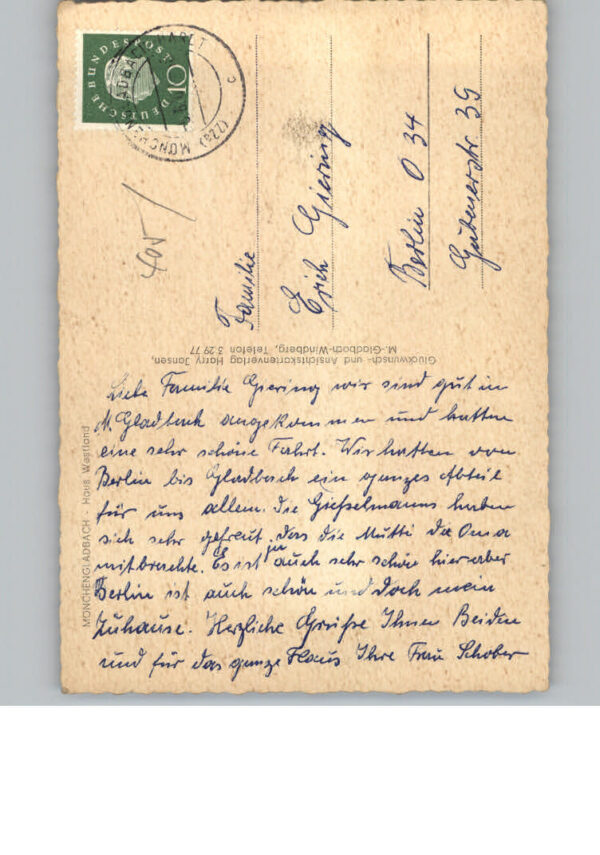 DEUTSCHE BUNDESPOST
10
(22a) MÖNCHENGLADBACH
405
Familie
Erich Giering
Berlin O 34
Gubenerstr 39
Glückwunsch- und Ansichtskartenverlag Harry Jansen,
M.-Gladbach-Windberg, Telefon 3 29 77
MÖNCHENGLADBACH - Haus Westland
Liebe Familie Giering wir sind gut in
M. Gladbach angekommen und hatten
eine sehr schöne Fahrt. Wir hatten von
Berlin bis Gladbach ein ganzes Abteil
für uns allein. Die Gießelmanns haben
sich sehr gefreut das die Mutti die Oma
mitbrachte. Es ist ja auch sehr schön hier aber
Berlin ist auch schön und doch mein
Zuhause. Herzliche Grüße Ihnen Beiden
und für das ganze Haus Ihre Frau Schober